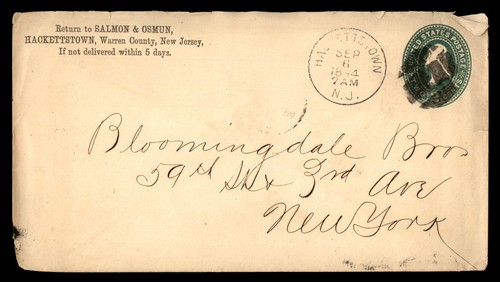 Return to SALMON & OSMUN,
HACKETTSTOWN, Warren County, New Jersey,
If not delivered within 5 days.
HACKETTSTOWN
SEP
6
7AM
N.J.
UNITED STATES POSTAGE
Bloomingdale Bros
59th St & 3rd Ave
New York